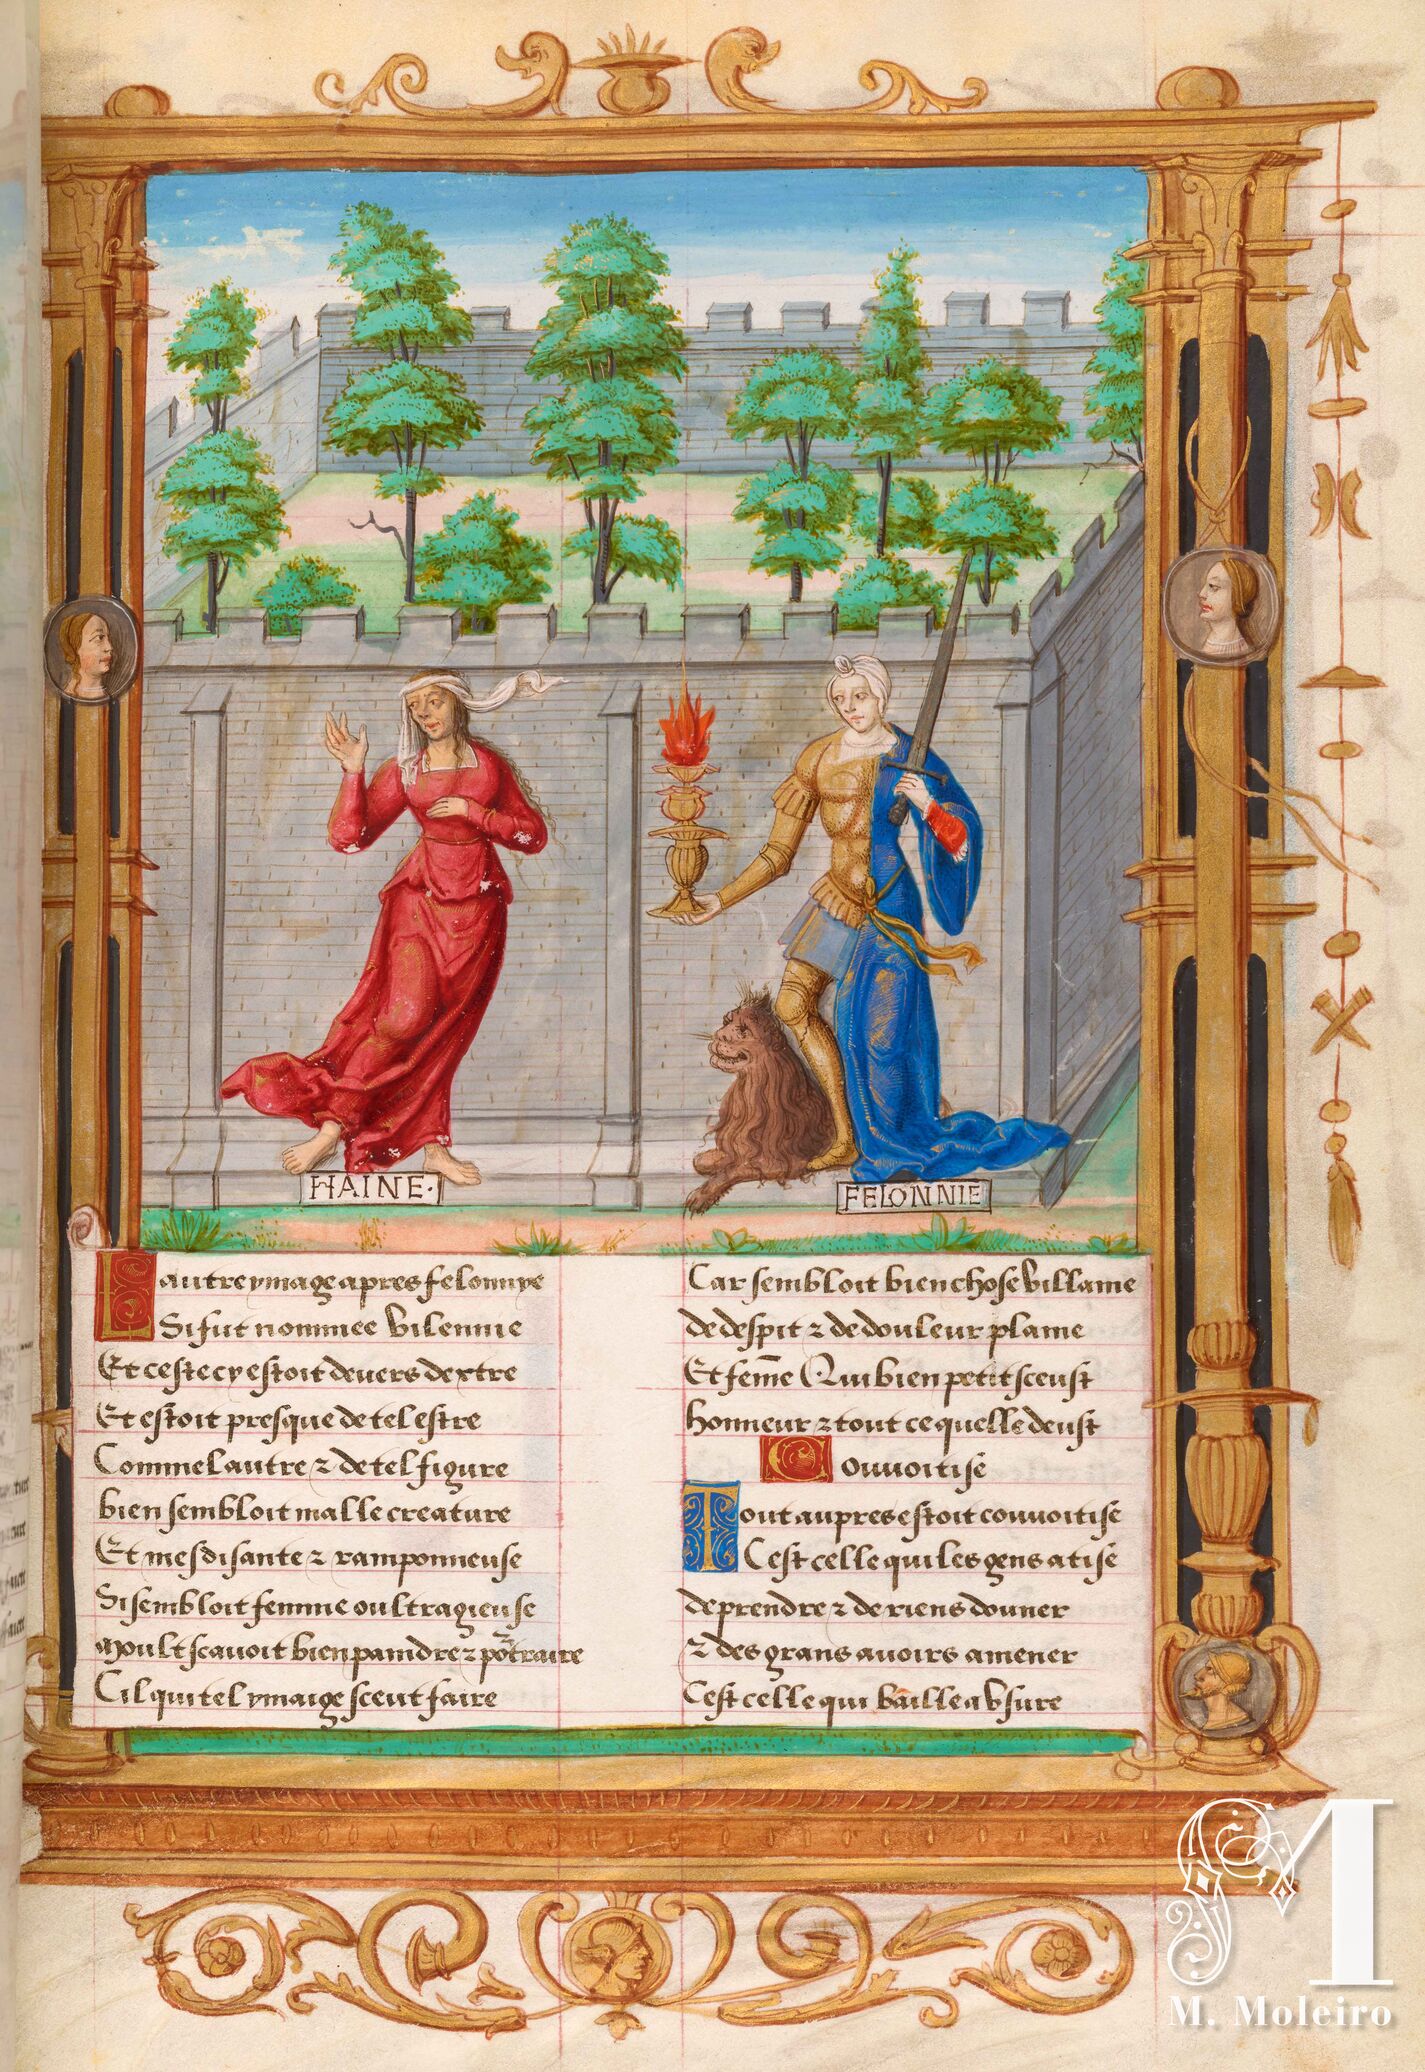 HAINE.
FELONNIE
Lautre ymage apres felonnye
Si fut nommee Vilennie
Et ceste cy estoit devers dextre
Et estoit presque de tel estre
Comme lautre ⁊ de tel figure
bien sembloit malle creature
Et mesdisante ⁊ ramponneuse
Si sembloit femme oultragieuse
Moult scavoit bien paindre ⁊ potraire
Cil qui tel ymaige sceut faire
Car sembloit bien chose villaine
de despit ⁊ de douleur plaine
Et feme Qui bien petit sceust
honneur ⁊ tout ce quelle deust
Couvoitise
Tout aupres estoit couvoitise
Cest celle qui les gens atise
de prendre ⁊ de riens donner
⁊ des grans avoirs amener
Cest celle qui baille a Vsure
M. Moleiro